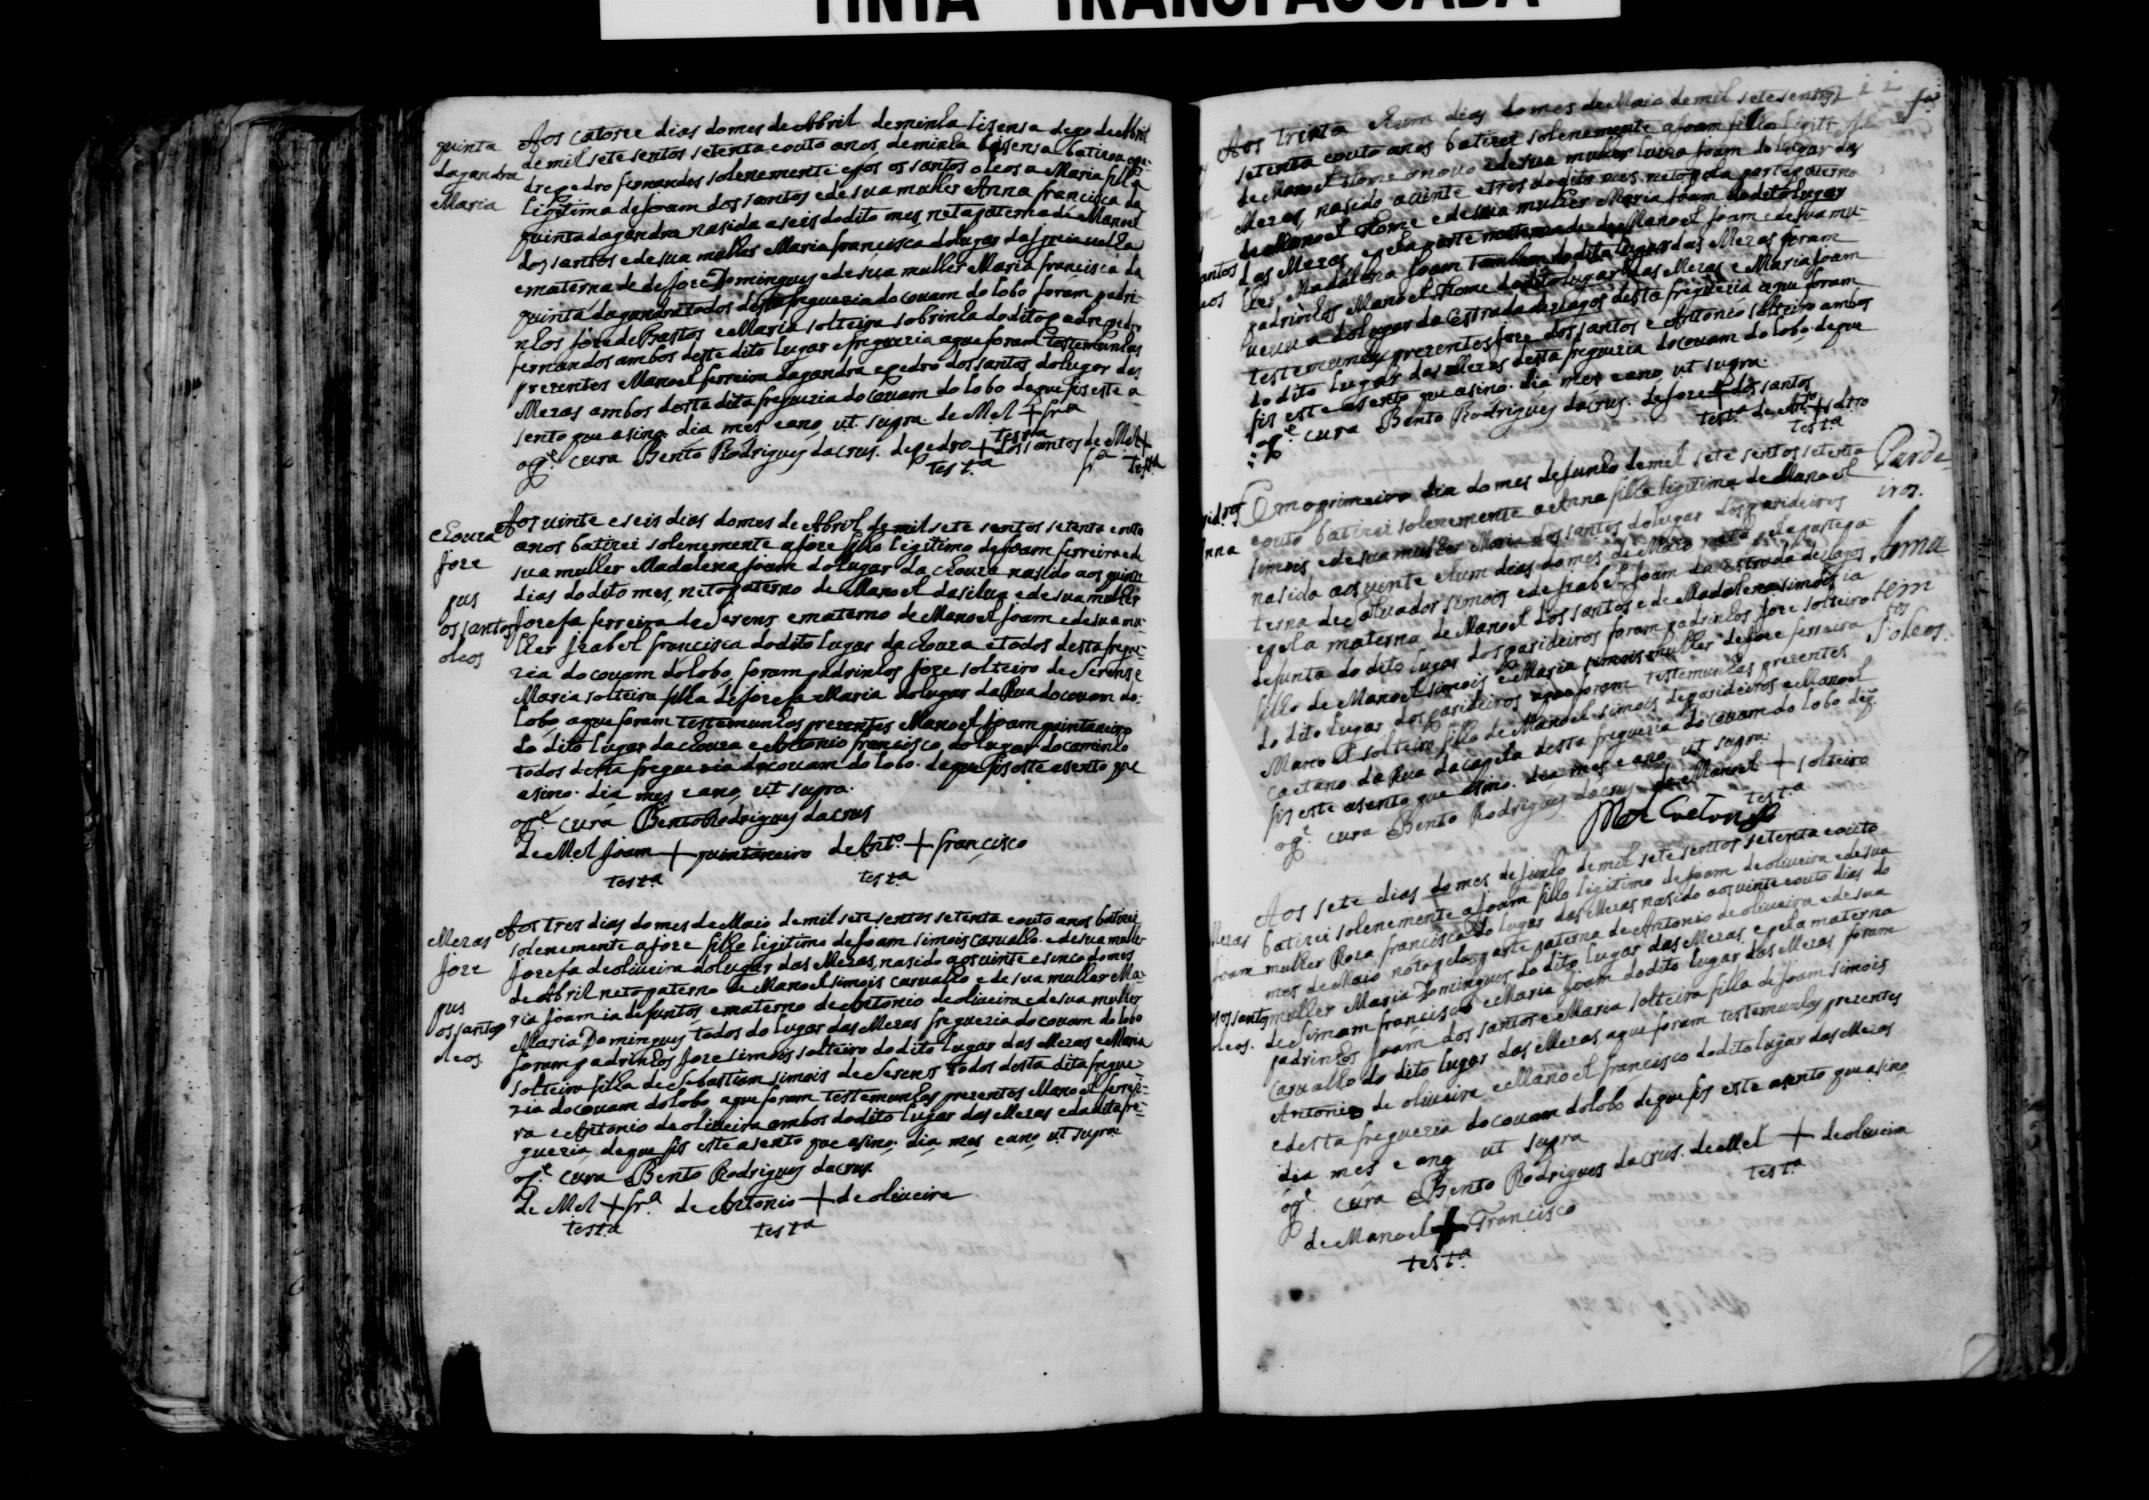 TINTA TRANSPASSADA
quinta
dagandra
Maria
Aos catorze dias do mes de Abril de minha lisensa digo de Abril
de mil sete sentos setenta eouto anos, deminha lisensa batizou opa-
dre pedro fernandes solenemente epos os santos oleos a Maria filha
ligitima de Joam dos santos ede sua mulher Anna francisca da
quinta dagandra nasida aseis dodito mes, neta paterna de Manoel
dos santos e de sua mulher Maria francisca do lugar da
ematerna de de Joze Domingues e de sua mulher Maria francisca da
quinta dagandra todos desta freguezia do couam do lobo foram padri-
nhos Joze de Bastos e Maria solteira sobrinha do dito padre pedro
fernandes ambos deste dito lugar e freguezia aque foram testemunhas
prezentes Manoel ferreira dagandra e pedro dos santos do lugar das
Mezas ambos desta dita freguezia do couam do lobo de que fis este a
sento que asino. dia mes e ano ut supra. de Mel + frª
oPe cura Bento Rodrigues da crus. de pedro + dos santos de Mel +
testª
eloura
Joze
pus
os santos
oleos
Aos uinte e seis dias do mes de Abril de mil sete sentos setenta e outo
anos batizei solenemente a joze filho ligitimo de Joam ferreira e de
sua mulher Madalena Joam do lugar da nasido aos quinze
dias do dito mes, neto paterno de Manoel da silua e de sua mulher
Jozefa ferreira de Serens ematerno de Manoel Joam e de sua mu-
lher Izabel francisca do dito lugar da e todos desta fregue-
zia do couam do lobo, foram padrinhos Joze solteiro de Serens e
Maria solteira filha de Jozefa Maria do lugar da Rua do couam do
lobo aque foram testemunhas prezentes Manoel Joam quintaneiro
do dito lugar da e Antonio francisco, do lugar do caminho
todos desta freguezia do couam do lobo. de que fis este asento que
asino. dia mes e ano, ut supra.
oPe cura Bento Rodrigues da crus
de Mel Joam + quintaneiro de Antº + francisco
testª testª
Mezas
Joze
pus
os santos
oleos.
Aos tres dias do mes de Maio de mil sete sentos setenta eouto anos batizei
solenemente a joze filho ligitimo de Joam simois carualho e de sua mulher
Jozefa de oliueira do lugar das Mezas, nasido aos uinte e sinco do mes
de Abril neto paterno de Manoel simois carualho e de sua mulher Ma-
ria Joam ia defuntos ematerno de Antonio de oliueira e de sua mulher
Maria Domingues todos do lugar das Mezas freguezia do couam do lobo
foram padrinhos Joze simois solteiro do dito lugar das Mezas e Maria
solteira filha de Sebastiam simois de Serens todos desta dita fregue-
zia do couam do lobo aque foram testemunhas prezentes Manoel ferrei-
ra e Antonio de oliueira ambos do dito lugar das Mezas e da dita fre-
guezia, de que fis este asento que asino. dia mes e ano, ut supra
oPe cura Bento Rodrigues da crus.
de Mel + frª de Antonio + de oliueira
testª testª
Aos trinta e hum dias do mes de Maio de mil sete sentos
setenta eouto anos batizei solenemente a Joam filho
de Manoel Thome o nouo e de sua mulher Luiza Joam do lugar das
Mezas, nasido a uinte e tres do dito mes, neto pela parte paterna
de Manoel Thome e de sua mulher Maria Joam do dito lugar
das Mezas e pela parte materna de de Manoel Joam e de sua mu-
lher Madalena Joam tambem do dito lugar das Mezas foram
padrinhos Manoel Thome do dito lugar das Mezas e Maria Joam
ueuua do lugar da Estrada de lagos desta freguezia aque foram
testemunhas prezentes Joze dos santos e Antonio solteiro ambos
do dito lugar das Mezas desta freguezia do couam do lobo. de que
fis este asento que asino. dia mes e ano, ut supra.
oPe cura Bento Rodrigues da crus. de Joze + dos santos
testª de Antº + soltro
testª
Anna
Em o primeiro dia do mes de Junho de mil sete sentos setenta
eouto batizei solenemente a Anna filha ligitima de Manoel
simois e de sua mulher Maria dos santos do lugar dos parideiros
nasida aos uinte e hum dias do mes de Maio neta pela parte pa
terna de Saluador simois e de Izabel Joam da Estrada de lagos
e pela materna de Manoel dos santos e de Madalena simois ia
defunta do dito lugar dos parideiros foram padrinhos Joze solteiro
filho de Manoel simois e Maria simois mulher de Joze ferreira
do dito lugar dos parideiros aque foram testemunhas prezentes
Manoel solteiro filho de Manoel simois de parideiros e Manoel
caetano da Rua da capela desta freguezia do couam do lobo de q
fis este asento que asino. dia mes e ano, ut supra.
oPe cura Bento Rodrigues da crus de Manoel + solteiro
testª
Mel Caetano
Parde-
iros.
Anna
tem
Stos
oleos.
Mezas
Joam
os santos
oleos.
Aos sete dias do mes de Junho de mil sete sentos setenta eouto
batizei solenemente a Joam filho ligitimo de Joam de oliueira e de sua
mulher Roza francisca do lugar das Mezas nasido aos uinte eouto dias do
mes de Maio neto pela parte paterna de Antonio de oliueira e de sua
mulher Maria Domingues do dito lugar das Mezas e pela materna
de simam francisco e Maria Joam do dito lugar das Mezas foram
padrinhos Joam dos santos e Maria solteira filha de Joam simois
carualho do dito lugar das Mezas aque foram testemunhas prezentes
Antonio de oliueira e Manoel francisco do dito lugar das Mezas
e desta freguezia do couam do lobo de que fis este asento que asino
dia mes e ano ut supra
oPe cura Bento Rodrigues da crus. de Mel + de oliueira
testª
de Manoel + Francisco
testª